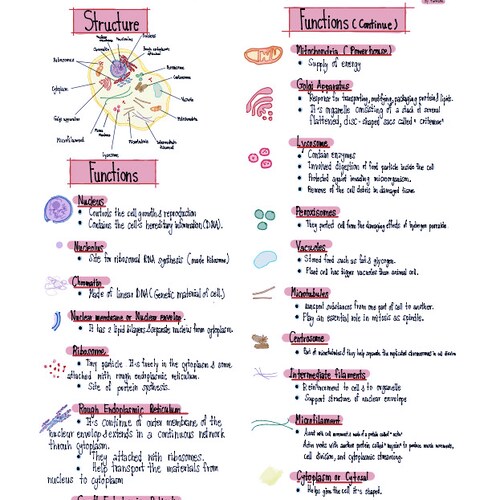 Structure
Nucleolus
Nucleus
Ribosomes
Peroxisome
Centrosome
Cytoplasm
Golgi apparatus
Microfilament
Lysosome
Functions
Nucleus
• Controls the cell growth & reproduction
• Contains the cell's hereditary information (DNA).
Nucleolus
• Site for ribosomal RNA synthesis (made Ribosome)
Chromatin
• Made of linear DNA (Genetic material of cell)
Nuclear membrane or Nuclear envelop
• It has 2 lipid bilayers & separate nucleus from cytoplasm.
Ribosome
• Tiny particle It's freely in the cytoplasm & some
attached with rough endoplasmic reticulum.
• Site of protein synthesis.
Rough Endoplasmic Reticulum
• It's continue of outer membrane of the
nuclear envelop & extends in a continuous network
through cytoplasm.
• They attached with ribosomes.
• Help transport the materials from
nucleus to cytoplasm
Functions (Continue)
Mitochondria (Powerhouse)
• Supply of energy
Golgi Apparatus
• Response for transporting, modifying, packaging protein & lipid.
• It's organelle consisting of a stack of several
flattened, disc-shaped sacs called "cisternae"
Lysosome
• Contain enzymes
• Involved digestion of food particle inside the cell
• Protected against invading microorganism.
• Remove of the cell debris in damaged tissue.
Peroxisomes
• They protect cell from the damaging effects of hydrogen peroxide.
Vacuoles
• Stored food such as fat & glycogen.
• Plant cell has bigger vacuoles than animal cell.
Microtubules
• Transport substances from one part of cell to another.
• Play an essential role in mitosis as spindle.
Centrosome
• Part of microtubules & they help separate the replicated chromosomes in cell division
Intermediate filaments
• Reinforcement to cell & to organelle
• Support structure of nuclear envelope
Microfilament
• Assist with cell movement & made of a protein called "actin"
Actin works with another protein called "myosin" to produce muscle movements,
cell division, and cytoplasmic streaming.
Cytoplasm or Cytosol
• Helps give the cell it's shaped.